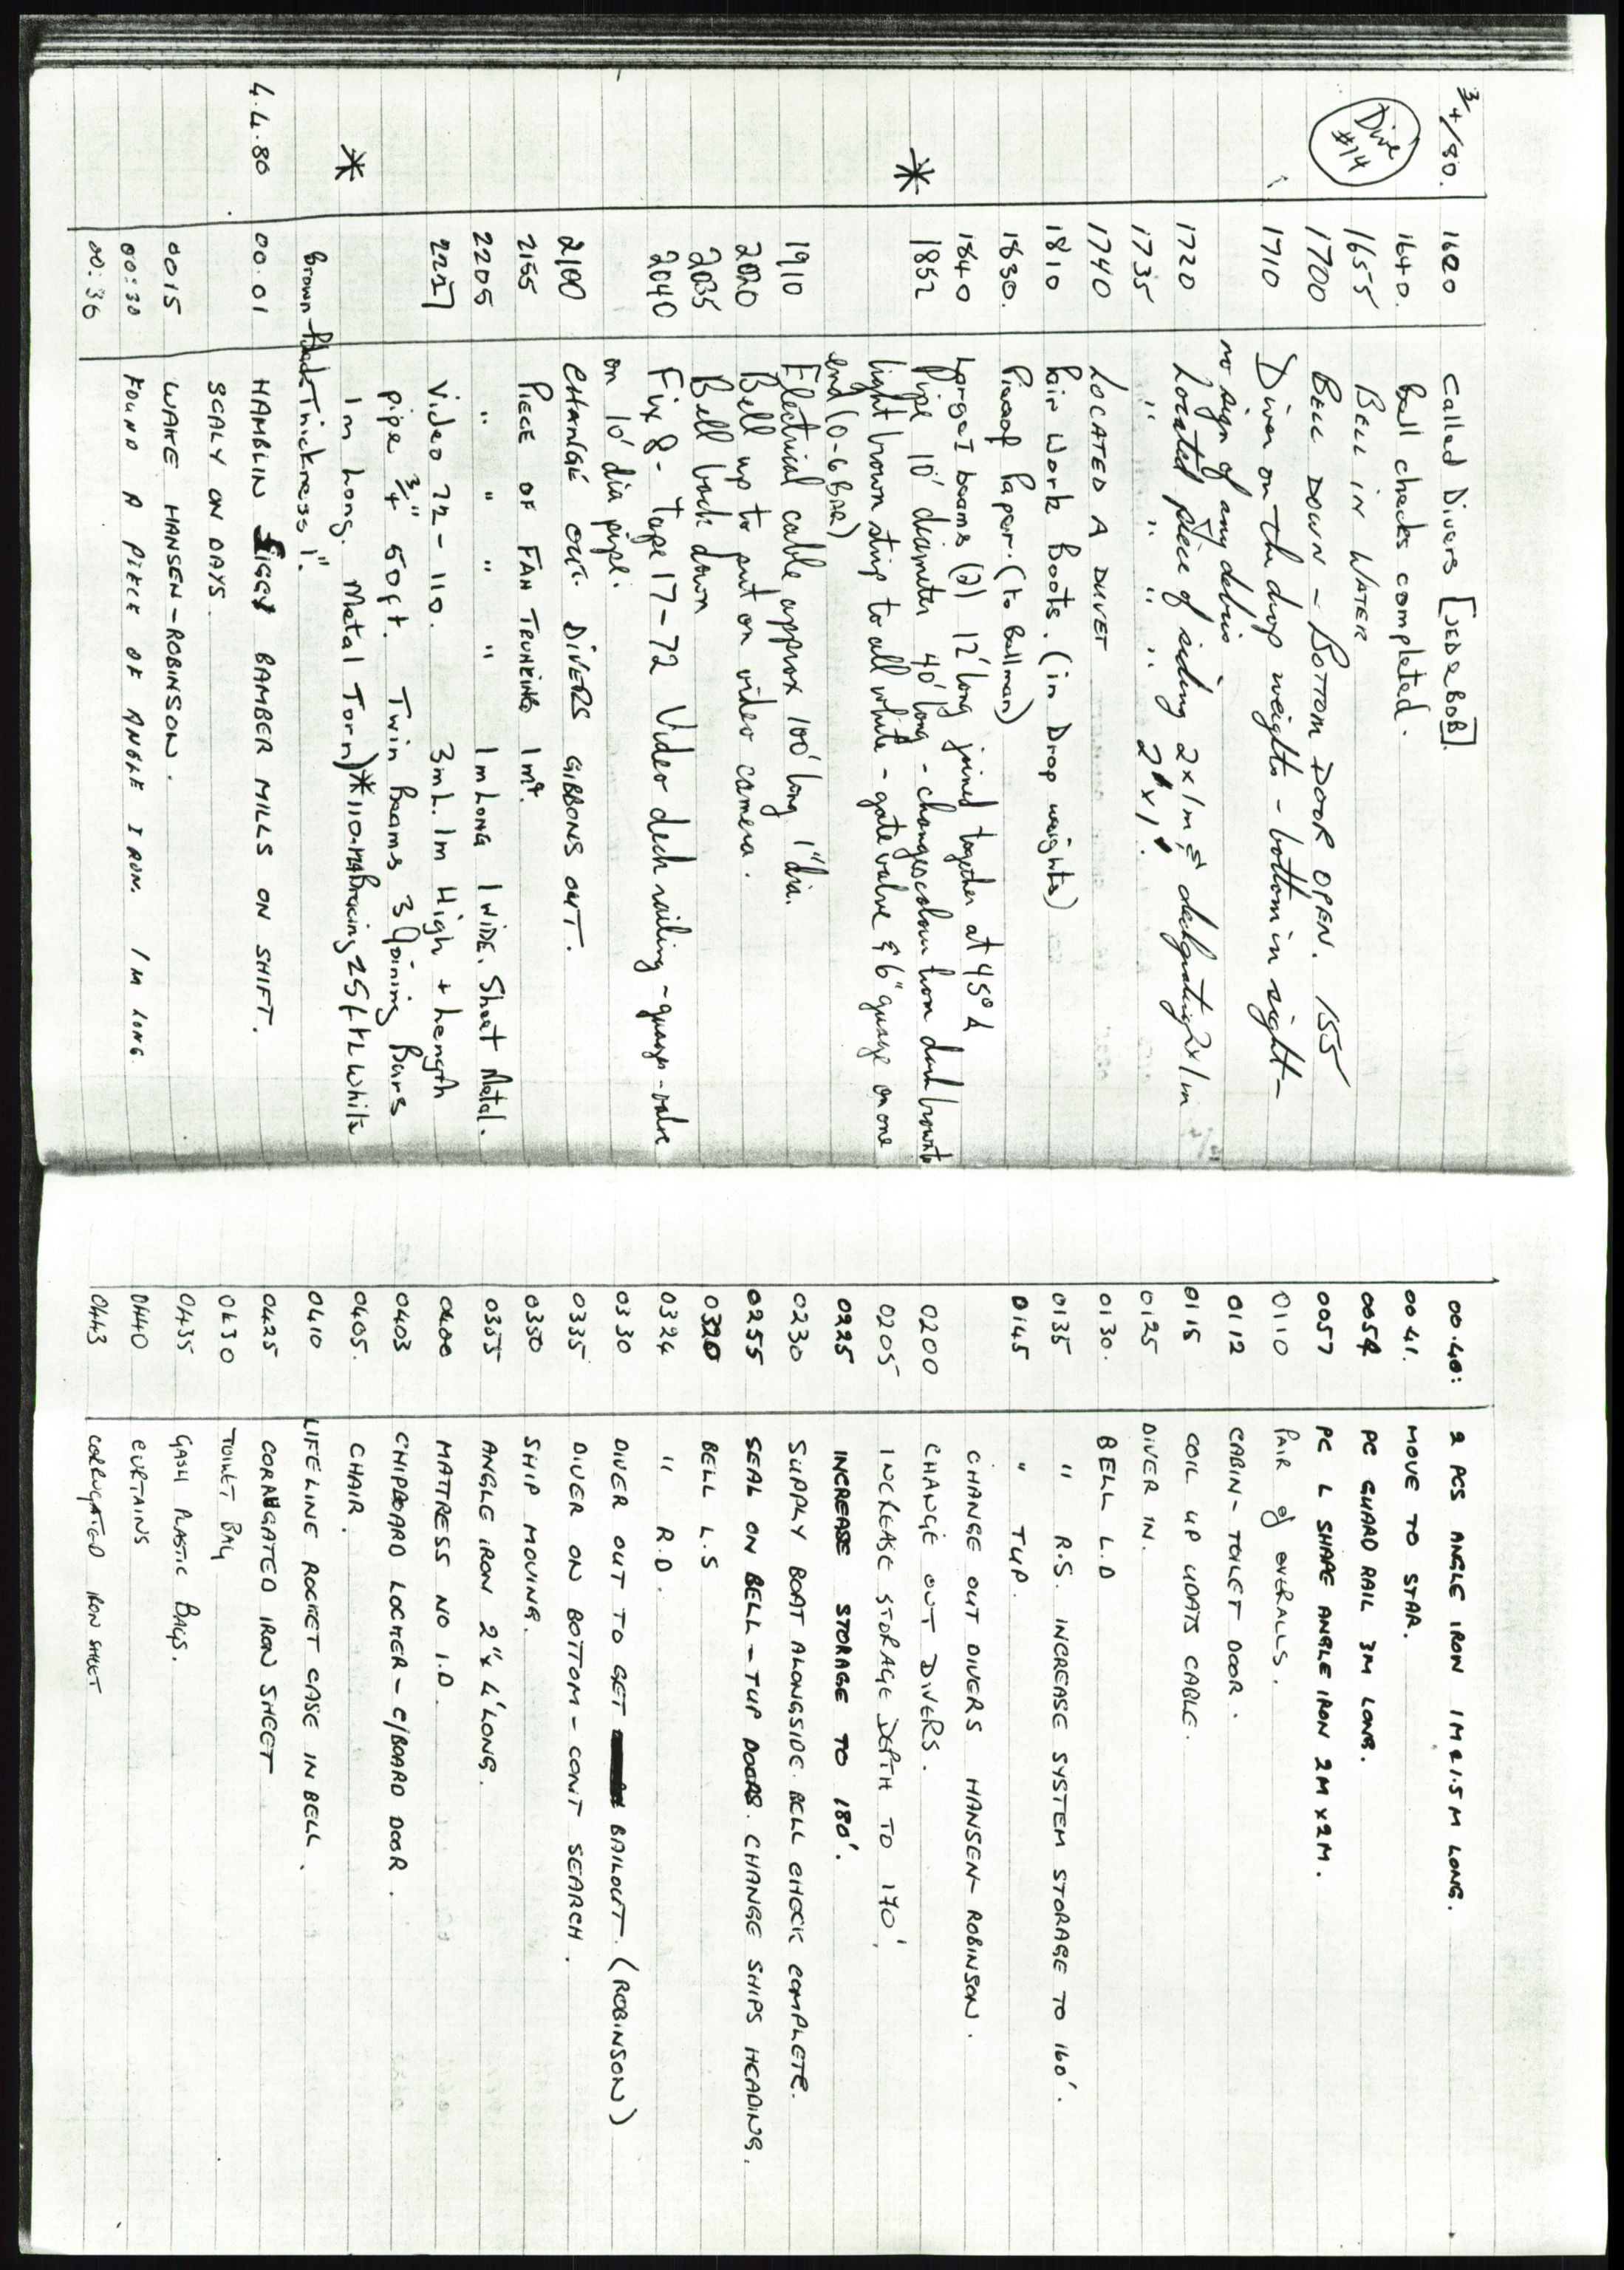 3/4/80. 1620 Called Divers [JED & BOB].
1640. bell checks completed.
Dive #14
1655 BELL IN WATER
1700 BELL DOWN - BOTTOM DOOR OPEN. 155
1710 Diver on the drop weights - bottom in sight -
no sign of any debris
1720 Located piece of siding 2 x 1m
1735 " " " " 2' x 1'.
1740 LOCATED A DUVET
1810 Pair Work Boots. (in Drop weights)
1830. Piece of Paper. (to bellman)
1840 Large I beams (2) 12' long joined together at 45°
* 1852 Pipe 10" diameter 40' long - changes colour from dark brown to
light brown strip to all white - gate valve & 6" guage on one
end (0-6 BAR)
1910 Electrical cable, approx 100' long 1" dia.
2020 Bell up to put on video camera.
2035 Bell back down
2040 Fix 8 - Tape 17-72 Video deck railing - guage - valve
on 10" dia pipe.
2100 CHANGE OUT DIVERS GIBBONS OUT.
2155 PIECE OF FAN TRUNKING 1m².
2205 " " " " 1m LONG 1 WIDE. Sheet Metal.
2227 Video 72 - 110. 3mL. 1m High + Length
pipe 3/4" 50ft. Twin Beams 3 Joining Bars
* 1m Long. Metal Torn) * 110-112 Bracing 25ft L White
Brown Thickness 1".
4.4.80 00.01 HAMBLIN SIGGY BAMBER MILLS ON SHIFT.
SCALY ON DAYS.
0015 WAKE HANSEN - ROBINSON.
00:30 FOUND A PIECE OF ANGLE IRON. 1M LONG.
00:36
00.40: 2 PCS ANGLE IRON 1M & 1.5 M LONG.
00.41. MOVE TO STAR.
0054 PC GUARD RAIL 3M LONG.
0057 PC L SHAPE ANGLE IRON 2M x 2M.
0110 PAIR of OVERALLS.
0112 CABIN - TOILET DOOR.
0115 COIL UP UDATS CABLE.
0125 DIVER IN.
0130. BELL L.D
0135 " R.S. INCREASE SYSTEM STORAGE TO 160'.
0145 " TUP.
CHANGE OUT DIVERS HANSEN - ROBINSON.
0200 CHANGE OUT DIVERS.
0205 INCREASE STORAGE DEPTH TO 170'.
0225 INCREASE STORAGE TO 180'.
0230 SUPPLY BOAT ALONGSIDE. BELL CHECK COMPLETE.
0255 SEAL ON BELL - TUP DOORS. CHANGE SHIPS HEADING.
0320 BELL L.S
0324 " R.D.
0330 DIVER OUT TO GET BAILOUT. (ROBINSON)
0335 DIVER ON BOTTOM - CONT SEARCH.
0350 SHIP MOVING.
0355 ANGLE IRON 2" x 4' LONG.
0400 MATTRESS NO I.D.
0403 CHIPBOARD LOCKER - C/BOARD DOOR.
0405. CHAIR.
0410 LIFELINE ROCKET CASE IN BELL.
0425 CORRUGATED IRON SHEET
0430 TOILET BAG
0435 GASH PLASTIC BAGS.
0440 CURTAINS
0443 CORRUGATED IRON SHEET